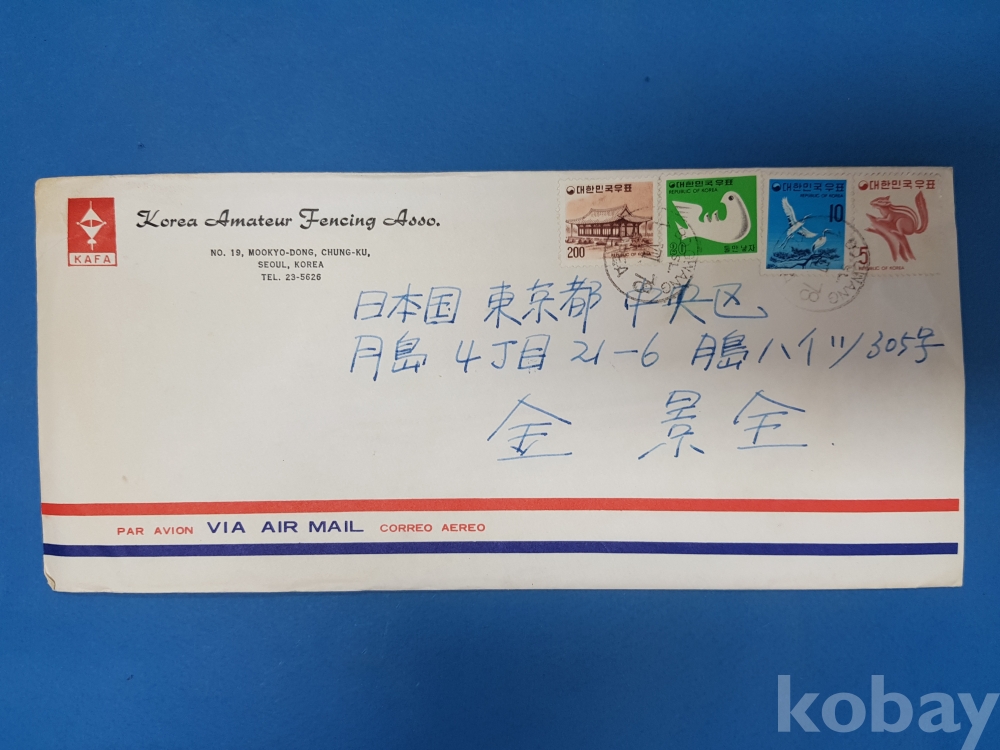 KAFA
Korea Amateur Fencing Asso.
NO. 19, MOOKYO-DONG, CHUNG-KU,
SEOUL, KOREA
TEL. 23-5626
대한민국우표
REPUBLIC OF KOREA
200
대한민국우표
REPUBLIC OF KOREA
20
대한민국우표
REPUBLIC OF KOREA
10
대한민국우표
5
REPUBLIC OF KOREA
78
78
日本国 東京都 中央区
月島 4丁目 21-6 月島ハイツ305号
金 景 全
PAR AVION VIA AIR MAIL CORREO AEREO
kobay